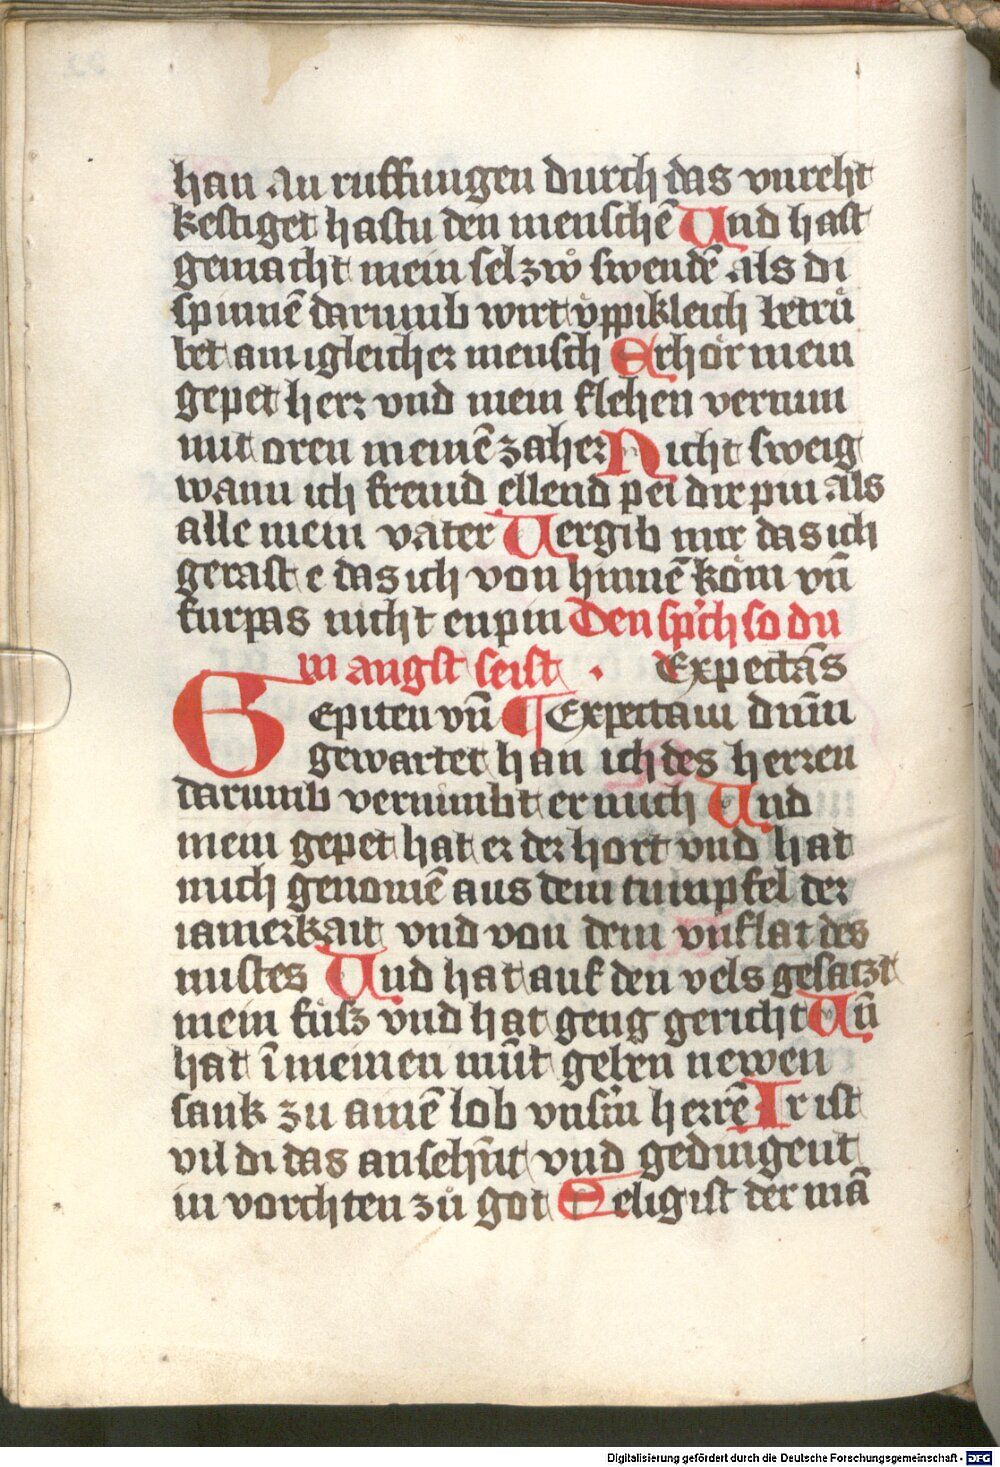 han an ruffungen durch das vnrecht
kestiget hastu den menschē Und hast
gemacht mein sel zwͦ swendē als di
spinnē darumb wirt v̈ppikleich betrü
bet ain igleicher mensch Erhör mein
gepet herr vnd mein flehen vernim
mit oren meinē zaher Nicht sweig
wann ich fremd ellend pei dir pin als
alle mein vater Uergib mir das ich
gerast e das ich von hinnē köm vn̄
furpas nicht enpin Den sp'ch so du
in angst seist · Expectās
Gepiten vn̄ ¶ Expectaui dn̄m
gewartet han ich des herren
darumb vernimbt er mich Und
mein gepet hat er der hort vnd hat
mich genomē aus dem tumpfel der
iamerkait vnd von dem vnflat des
mistes Und hat auf den vels gesatzt
mein füsz vnd hat geng gericht Un̄
hat ī meinen mu̇t geben newen
sank zu ainē lob vnsm̄ herrē Ir ist
vil di das ansehn̄t vnd gedingent
in vorchten zů got Selig ist der mā
Digitalisierung gefördert durch die Deutsche Forschungsgemeinschaft - DFG